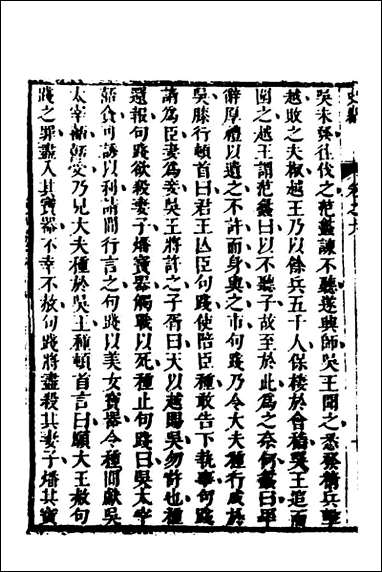 吳未發往伐之范蠡諫不聽遂興師吳王聞之悉發精兵擊
越敗之夫椒越王乃以餘兵五千人保棲於會稽吳王追而
圍之越王謂范蠡曰以不聽子故至於此為之奈何蠡曰卑
辭厚禮以遺之不許而身與之市句踐乃令大夫種行成於
吳膝行頓首曰君王亡臣句踐使陪臣種敢告下執事句踐
請為臣妻為妾吳王將許之子胥曰天以越賜吳勿許也種
還報句踐欲殺妻子燔寶器觸戰以死種止句踐曰吳太宰
嚭貪可誘以利請間行言之句踐以美女寶器令種間獻吳
太宰嚭嚭受乃見大夫種於吳王種頓首言曰願大王赦句
踐之罪盡入其寶器不幸不赦句踐將盡殺其妻子燔其寶